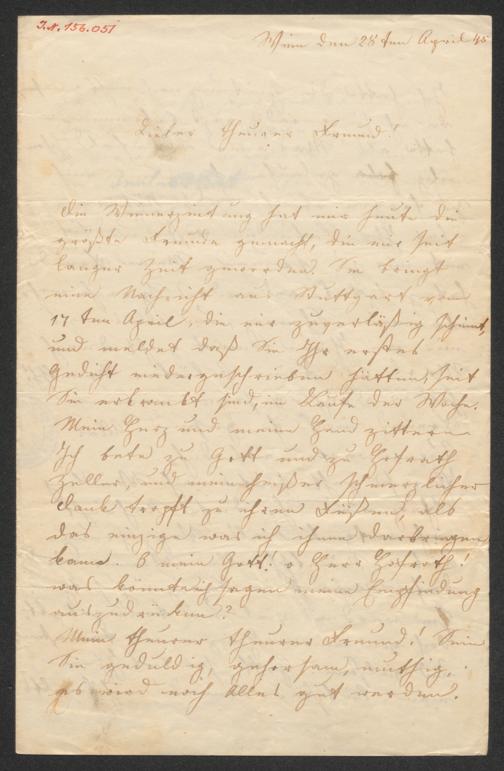 I.N. 156.051
Wien den 28ten April 45
Lieber theurer Freund!
Die Wienerzeitung hat mir heute die
größte Freude gemacht, die mir seit
langer Zeit geworden. Sie bringt
eine Nachricht aus Stuttgart vom
17ten April, die mir zuverläßig scheint,
und meldet daß Sie Ihr erstes
Gedicht niedergeschrieben hätten, seit
Sie erkrankt sind, im Laufe der Woche.
Mein Herz und meine Hand zittern
Ich bete zu Gott und zu Hofrath
Zeller, und mein heißer schmerzlicher
Dank tropft zu ihren Füßen, als
das einzige was ich ihnen darbringen
kann. O mein Gott! o Herr Hofrath!
was könnte ich sagen meine Empfindung
auszudrücken?
Mein theurer theurer Freund! Sein
Sie geduldig, gehorsam, muthig,
es wird noch Alles gut werden.